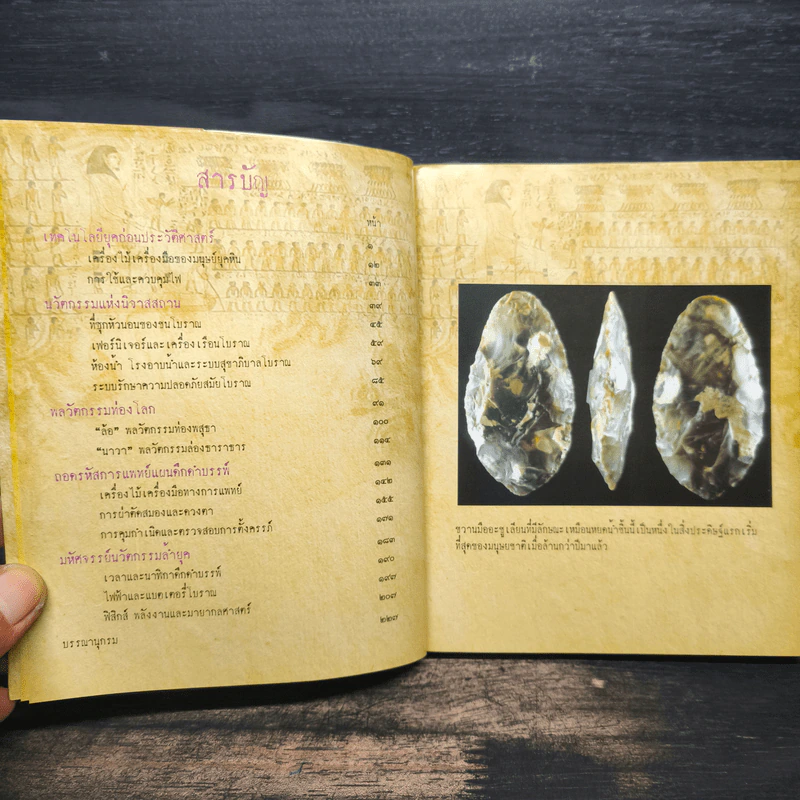 สารบัญ
หน้า
เทคโนโลยียุคก่อนประวัติศาสตร์ ๑
เครื่องไม้เครื่องมือของมนุษย์ยุคหิน ๑๒
การใช้และควบคุมไฟ ๓๓
นวัตกรรมแห่งนิวาสสถาน ๓๙
ที่ซุกหัวนอนของชนโบราณ ๔๕
เฟอร์นิเจอร์และเครื่องเรือนโบราณ ๕๙
ห้องน้ำ โรงอาบน้ำและระบบสุขาภิบาลโบราณ ๖๙
ระบบรักษาความปลอดภัยสมัยโบราณ ๘๕
พลวัตกรรมท่องโลก ๙๑
"ล้อ" พลวัตกรรมท่องพสุธา ๑๐๐
"นาวา" พลวัตกรรมล่องธาราธาร ๑๑๔
ถอดรหัสการแพทย์แผนดึกดำบรรพ์ ๑๓๑
เครื่องไม้เครื่องมือทางการแพทย์ ๑๔๒
การผ่าตัดสมองและดวงตา ๑๕๕
การคุมกำเนิดและตรวจสอบการตั้งครรภ์ ๑๗๑
มหัศจรรย์นวัตกรรมล้ำยุค ๑๘๓
เวลาและนาฬิกาดึกดำบรรพ์ ๑๙๐
ไฟฟ้าและแบตเตอรี่โบราณ ๑๙๗
ฟิสิกส์ พลังงานและมายากลศาสตร์ ๒๐๗
บรรณานุกรม ๒๒๗
ขวานมืออะชูเลียนที่มีลักษณะเหมือนหยดน้ำชิ้นนี้เป็นหนึ่งในสิ่งประดิษฐ์แรกเริ่ม
ที่สุดของมนุษยชาติเมื่อล้านกว่าปีมาแล้ว